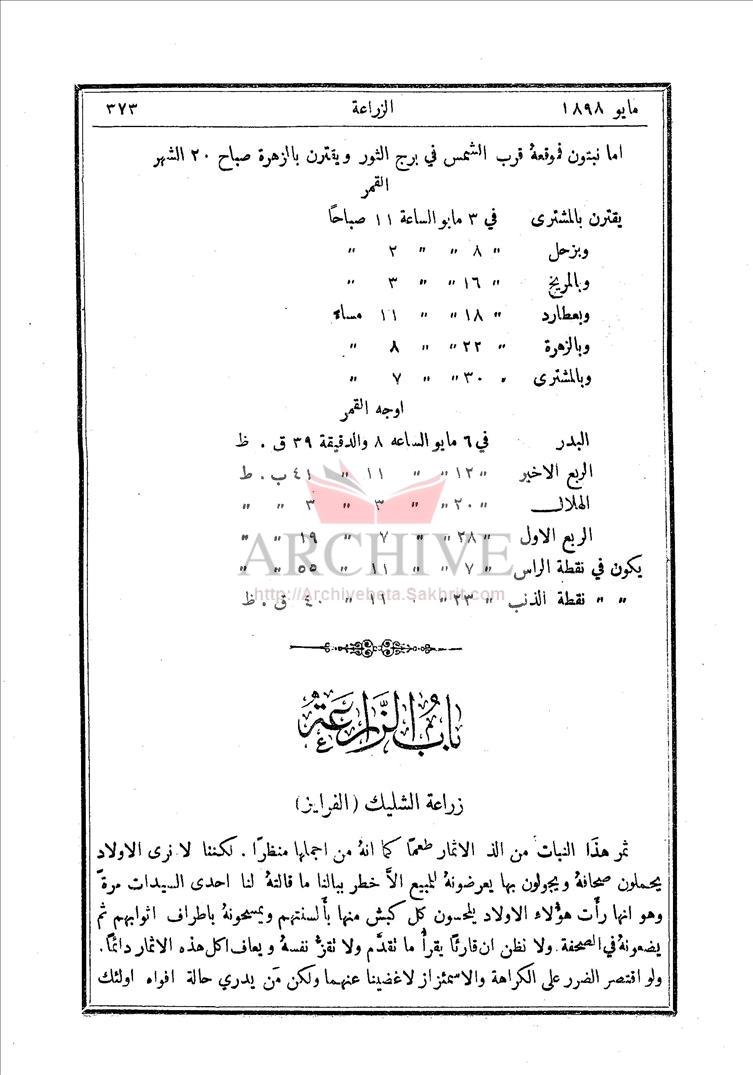 مايو ١٨٩٨ الزراعة ٣٧٣
اما نبتون فموقعهُ قرب الشمس في برج الثور ويقترن بالزهرة صباح ٢٠ الشهر
القمر
يقترن بالمشترى في ٣ مايو الساعة ١١ صباحًا
وبزحل " ٨ " " ٢ "
وبالمريخ " ١٦ " " ٣ "
وبعطارد " ١٨ " " ١١ مساء
وبالزهرة " ٢٢ " " ٨ "
وبالمشترى " ٣٠ " " ٧ "
اوجه القمر
البدر في ٦ مايو الساعه ٨ والدقيقة ٣٩ ق . ظ
الربع الاخير " ١٢ " " ١١ " ٤١ ب . ظ
الهلال " ٢٠ " " ٣ " ٣ " "
الربع الاول " ٢٨ " " ٧ " ١٩ " "
ARCHIVE
يكون في نقطة الراس " ٧ " " ١١ " ٥٥ " "
http://Archivebeta.Sakhrit.com
" " نقطة الذنب " ٢٣ " ١١ " ٤٠ ق . ظ
باب الزراعة
زراعة الشليك (الفرايز)
ثمر هذا النبات من الذ الاثمار طعمًا كما انهُ من اجملها منظرًا . لكننا لا نرى الاولاد
يحملون صحافهُ ويجولون بها يعرضونهُ للمبيع الاَّ خطر ببالنا ما قالتهُ لنا احدى السيدات مرةً
وهو انها رأَت هؤلاء الاولاد يلحسون كل كبش منها بأَلسنتهم ويمسحونهُ باطراف اثوابهم ثم
يضعونهُ في الصحفة ولا نظن ان قارئًا يقرأُ ما تقدَّم ولا تقزُّ نفسهُ ويعاف اكل هذه الاثمار دائمًا .
ولو اقتصر الضرر على الكراهة والاسمئزاز لاغضينا عنهما ولكن مَن يدري حالة افواه اولئك